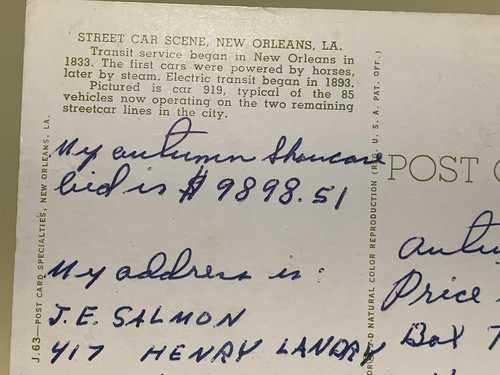 STREET CAR SCENE, NEW ORLEANS, LA.
Transit service began in New Orleans in
1833. The first cars were powered by horses,
later by steam. Electric transit began in 1893.
Pictured is car 919, typical of the 85
vehicles now operating on the two remaining
streetcar lines in the city.
My autumn Showcase
bid is $9898.51
My address is:
J.E. SALMON
417 HENRY LANDRY
J.63—POST CARD SPECIALTIES, NEW ORLEANS, LA.
NATURAL COLOR REPRODUCTION (REG. U.S.A. PAT. OFF.)
POST
Price
Box